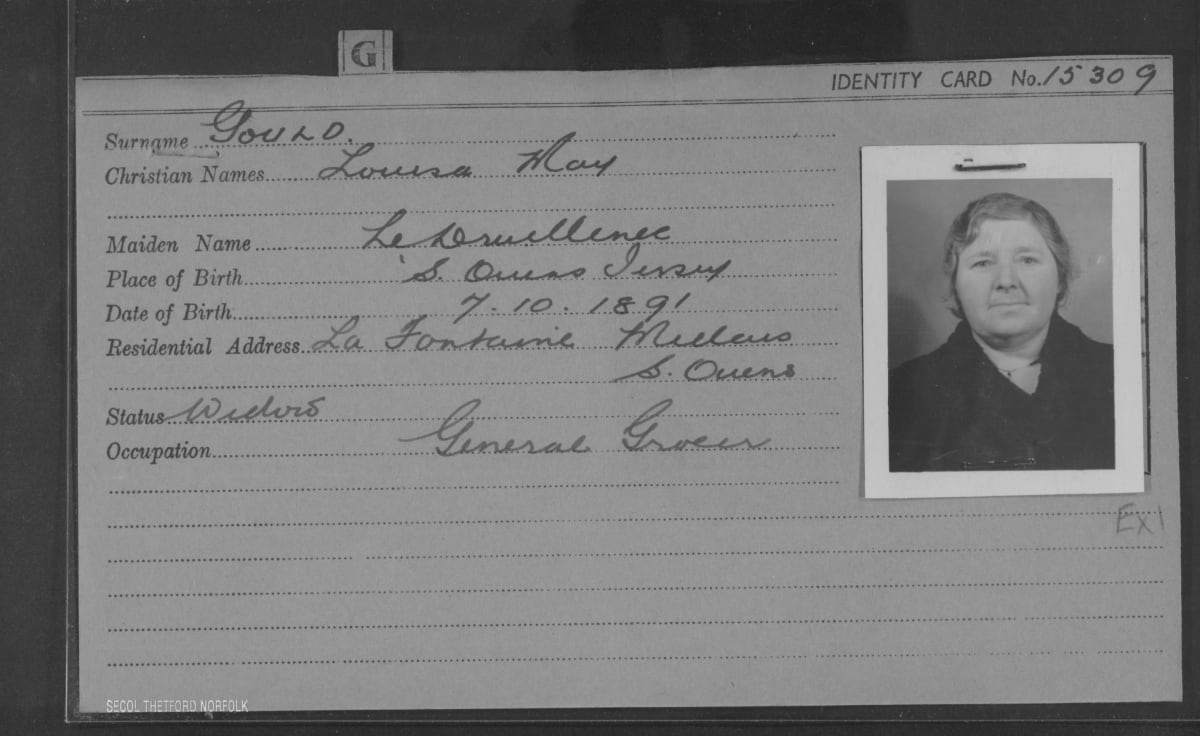 G
IDENTITY CARD No. 15309
Surname Gould.
Christian Names Louisa May
Maiden Name Le Druillenec
Place of Birth S. Ouens Jersey
Date of Birth 7.10.1891
Residential Address La Fontaine Millais
S. Ouens
Status Widow
Occupation General Grocer
Ex1
SECOL THETFORD NORFOLK